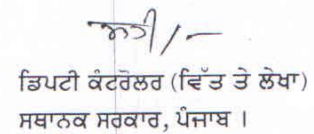 ਸਹੀ/-
ਡਿਪਟੀ ਕੰਟਰੋਲਰ (ਵਿੱਤ ਤੇ ਲੇਖਾ)
ਸਥਾਨਕ ਸਰਕਾਰ, ਪੰਜਾਬ ।